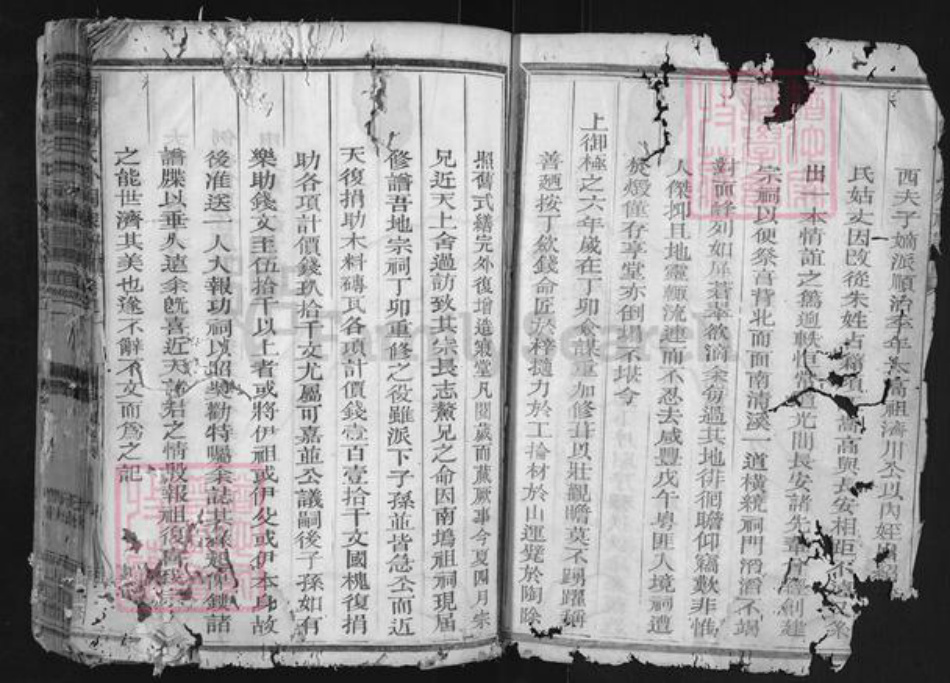 西夫子嫡派順治年高祖濟川公以內姪
氏姑丈因改從朱姓占籍項高高與長安相距不遠又系
出一本情誼之篤逾軼恒常道光間長安諸先輩創建
宗祠以便祭享背北而面南清溪一道橫繞祠門滔滔不竭
對面峰列如屏蒼翠欲滴余每過其地徘徊瞻仰竊歎非惟
人傑抑且地靈輒流連而不忍去咸豐戊午粵匪入境祠遭
焚燬僅存享堂亦倒塌不堪今
上御極之六年歲在丁卯僉謀重加修葺以壯觀瞻莫不踴躍稱
善廼按丁斂錢命匠於梓獲力於工掄材於山運甓於陶除
照舊式繕完外復增造寢堂凡閱歲而蕆厥事今夏四月宗
兄近天上舍過訪致其宗長志鰲兄之命因南塢祖祠現屆
修譜吾地宗祠丁卯重修之役雖派下子孫並皆急公而近
天復捐助木料磚瓦各項計價錢壹百壹拾千文國槐復捐
助各項計價錢玖拾千文尤屬可嘉並公議嗣後子孫如有
樂助錢文至伍拾千以上者或將伊祖或伊父或伊本身故
後准送一人大報功祠以昭獎勸特囑余誌其緣起併鋟諸
譜牒以垂久遠余既喜近天諸君之情殷報祖復
之能世濟其美也遂不辭不文而為之記